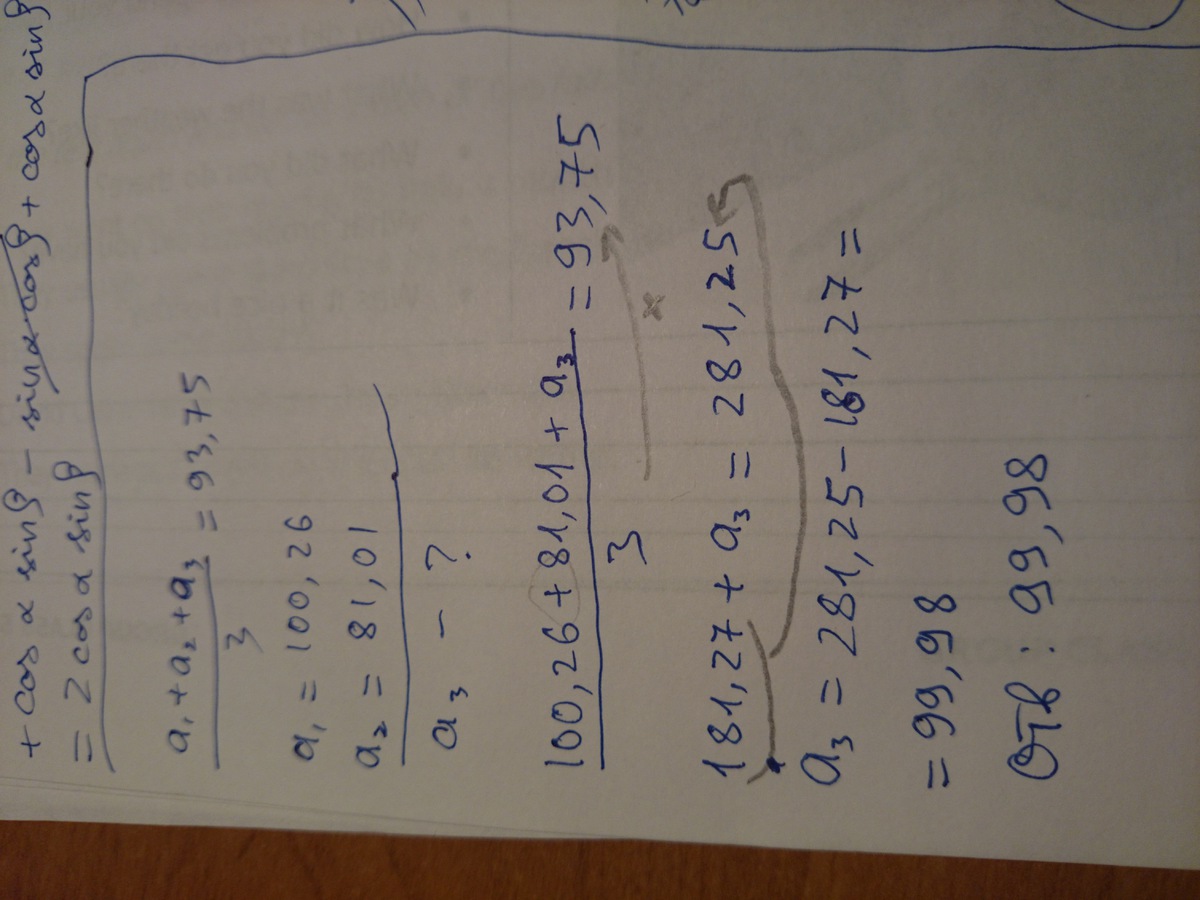 + cos α sin β − sin α cos β + cos α sin β
= 2 cos α sin β
a₁ + a₂ + a₃ / 3 = 93,75
a₁ = 100,26
a₂ = 81,01
a₃ − ?
100,26 + 81,01 + a₃ / 3 = 93,75
x
181,27 + a₃ = 281,25
a₃ = 281,25 − 181,27 =
= 99,98
Отв : 99,98